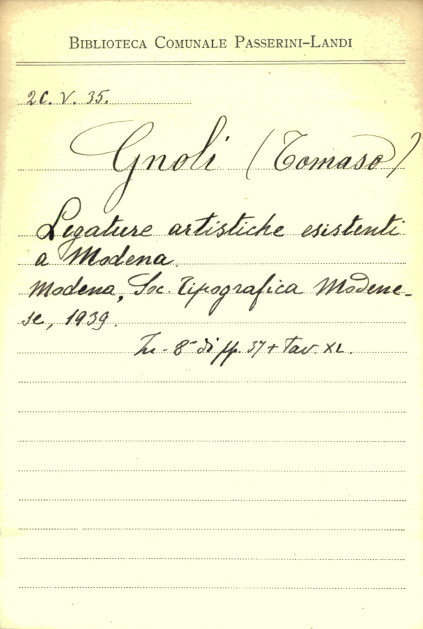 Biblioteca Comunale Passerini-Landi
2C. V. 35.
Gnoli (Tomaso)
Legature artistiche esistenti
a Modena.
Modena, Soc. Tipografica Modene-
se, 1939.
In-8° di pp. 37 + tav. XL.